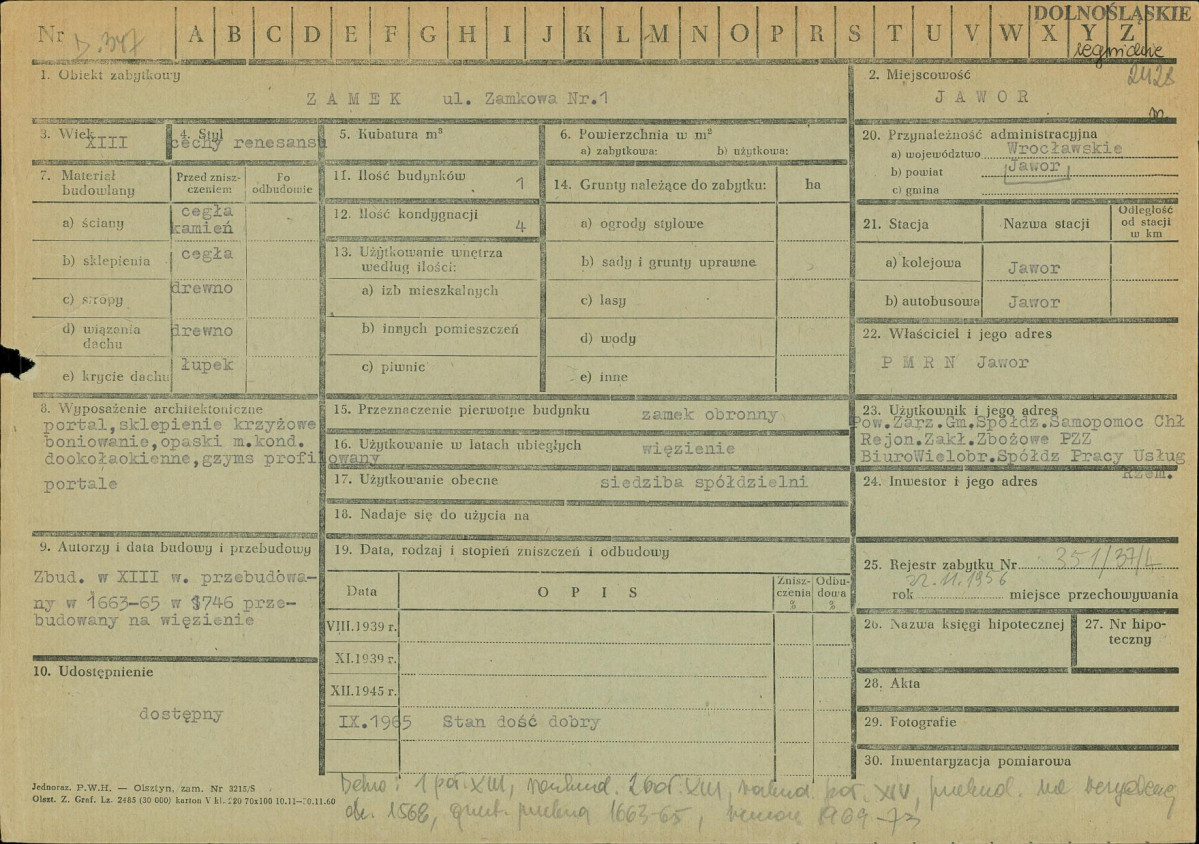 DOLNOŚLĄSKIE
Nr D.347 A B C D E F G H I J K L M N O P R S T U V W X Y Z
legnickie
2428
1. Obiekt zabytkowy
Z A M E K ul. Zamkowa Nr.1
2. Miejscowość
J A W O R
3. Wiek
XIII
4. Styl
cechy renesansu
5. Kubatura m³
6. Powierzchnia w m²
a) zabytkowa: b) użytkowa:
7. Materiał budowlany
Przed zniszczeniem
Po odbudowie
a) ściany
cegła
kamień
b) sklepienia
cegła
c) stropy
drewno
d) wiązania dachu
drewno
e) krycie dachu
łupek
11. Ilość budynków
1
12. Ilość kondygnacji
4
13. Użytkowanie wnętrza
według ilości:
a) izb mieszkalnych
b) innych pomieszczeń
c) piwnic
14. Grunty należące do zabytku: ha
a) ogrody stylowe
b) sady i grunty uprawne
c) lasy
d) wody
e) inne
20. Przynależność administracyjna
a) województwo Wrocławskie
b) powiat Jawor
c) gmina
21. Stacja
Nazwa stacji
Odległość
od stacji
w km
a) kolejowa Jawor
b) autobusowa Jawor
22. Właściciel i jego adres
P M R N Jawor
8. Wyposażenie architektoniczne
portal,sklepienie krzyżowe
boniowanie,opaski m.kond.
dookołaokienne,gzyms profilowany
portale
15. Przeznaczenie pierwotne budynku zamek obronny
16. Użytkowanie w latach ubiegłych więzienie
17. Użytkowanie obecne siedziba spółdzielni
18. Nadaje się do użycia na
23. Użytkownik i jego adres
Pow.Zarz.Gm.Spółdz.Samopomoc Chł
Rejon.Zakł.Zbożowe PZZ
BiuroWielobr.Spółdz Pracy Usług
Rzem.
24. Inwestor i jego adres
9. Autorzy i data budowy i przebudowy
Zbud. w XIII w. przebudowa-
ny w 1663-65 w 1746 prze-
budowany na więzienie
10. Udostępnienie
dostępny
19. Data, rodzaj i stopień zniszczeń i odbudowy
Data
O P I S
Zniszczenia %
Odbudowa %
VIII.1939 r.
XI.1939 r.
XII.1945 r.
IX.1965 Stan dość dobry
25. Rejestr zabytku Nr 351/37/L
22.11.1956
rok miejsce przechowywania
26. Nazwa księgi hipotecznej
27. Nr hipo-
teczny
28. Akta
29. Fotografie
30. Inwentaryzacja pomiarowa
Jednoraz. P.W.H. — Olsztyn, zam. Nr 3215/S
Olszt. Z. Graf. Lz. 2485 (30 000) karton V kl. 220 70x100 10.11—30.11.60
1 poł. XIII, 2 poł. XIII, poł. XIV,
ok. 1568, 1663-65, remont 1969-73